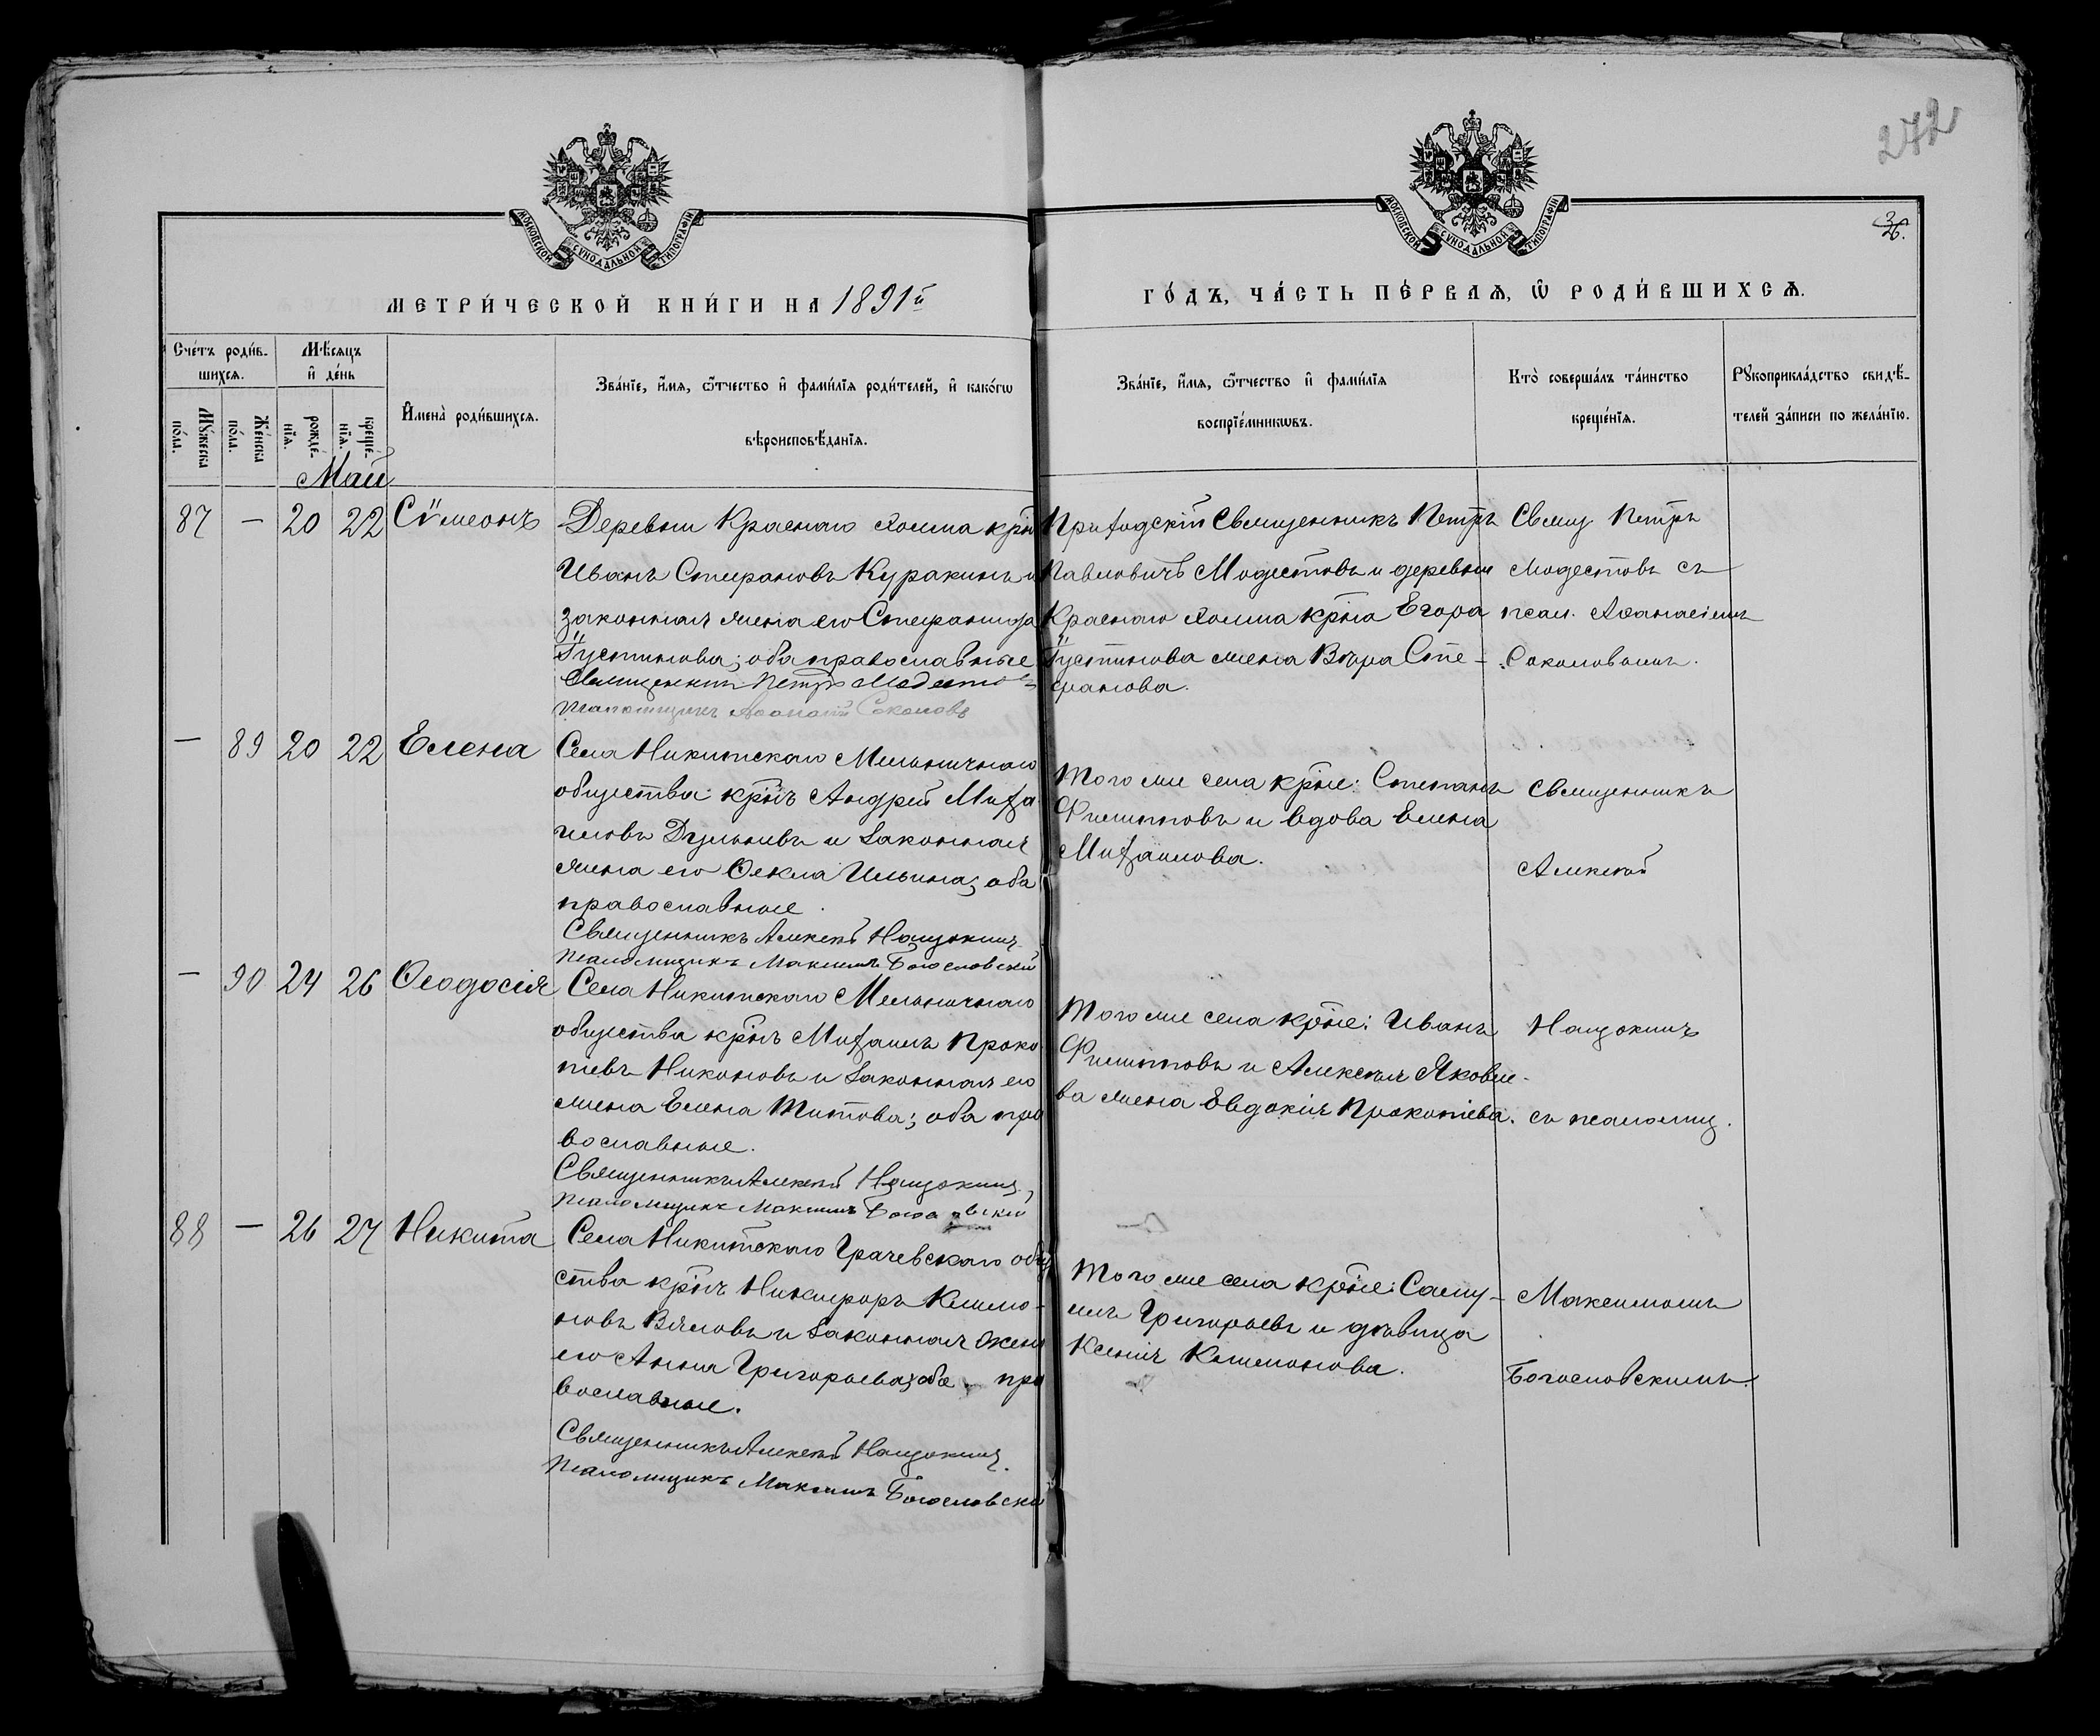 272
36.
МОСКОВСКОЙ СѴНОДАЛЬНОЙ ТИПОГРАФІИ
МОСКОВСКОЙ СѴНОДАЛЬНОЙ ТИПОГРАФІИ
МЕТРИ́ЧЕСКОЙ КНИ́ГИ НА 1891й
ГО́ДЪ, ЧА́СТЬ ПЕ́РВАѦ, Ѡ҆ РОДИ́ВШИХСѦ.
Сче́тъ роди́в-
шихсѧ.
Мѣ́сѧцъ
и҆ де́нь
Мꙋ́жеска
по́ла.
Же́нска
по́ла.
рожде́-
нїѧ.
креще́-
нїѧ.
И҆мена̀ роди́вшихсѧ.
Зва́нїе, и҆́мѧ, ѻ҆́тчество и҆ фами́лїѧ роди́телей, и҆ како́гѡ
вѣроисповѣ́данїѧ.
Зва́нїе, и҆́мѧ, ѻ҆́тчество и҆ фами́лїѧ
воспрїе́мникѡвъ.
Кто̀ соверша́лъ та́инство
креще́нїѧ.
Рꙋкоприкла́дство свидѣ́-
телей за́писи по жела́нїю.
Май
87 — 20 22 Сѵмеонъ
Деревни Краснаго Холма крнъ
Иванъ Стефановъ Куракинъ и
законная жена его Стефанида
Іустинова; оба православные
Священникъ Петръ Модестовъ
Псаломщикъ Аѳанасій Соколовъ
Приходскій Священникъ Петръ
Павловичъ Модестовъ и деревни
Краснаго Холма крна Егора
Іустинова жена Вѣра Сте-
фанова.
Свящ Петръ
Модестовъ съ
псал. Аѳанасіемъ
Соколовымъ.
— 89 20 22 Елена
Села Никитскаго Мельничнаго
общества крнъ Андрей Миха
иловъ Дульневъ и законная
жена его Ѳекла Ильина; оба
православные.
Священникъ Алексѣй Нащокинъ
Псаломщикъ Максимъ Богословскій
Того же села крне: Степанъ
Филипповъ и вдова Елена
Михаилова.
Священникъ
Алексѣй
— 90 24 26 Ѳеодосія
Села Никитскаго Мельничнаго
общества крнъ Михаилъ Проко
піевъ Никоновъ и законная его
жена Елена Титова; оба пра
вославные.
Священникъ Алексѣй Нащокинъ
Псаломщикъ Максимъ Богословскій
Того же села крне: Иванъ
Филипповъ и Алексѣя Яковле-
ва жена Евдокія Прокопіева.
Нащокинъ
съ псаломщ.
88 — 26 27 Никита
Села Никитскаго Грачевскаго обще
ства крнъ Никифоръ Климо-
новъ Вяловъ и законная жена
его Анна Григорьева; оба пра
вославные.
Священникъ Алексѣй Нащокинъ.
Псаломщикъ Максимъ Богословскій
Того же села крне: Саму-
илъ Григорьевъ и дѣвица
Ксенія Климонова.
Максимомъ
Богословскимъ.